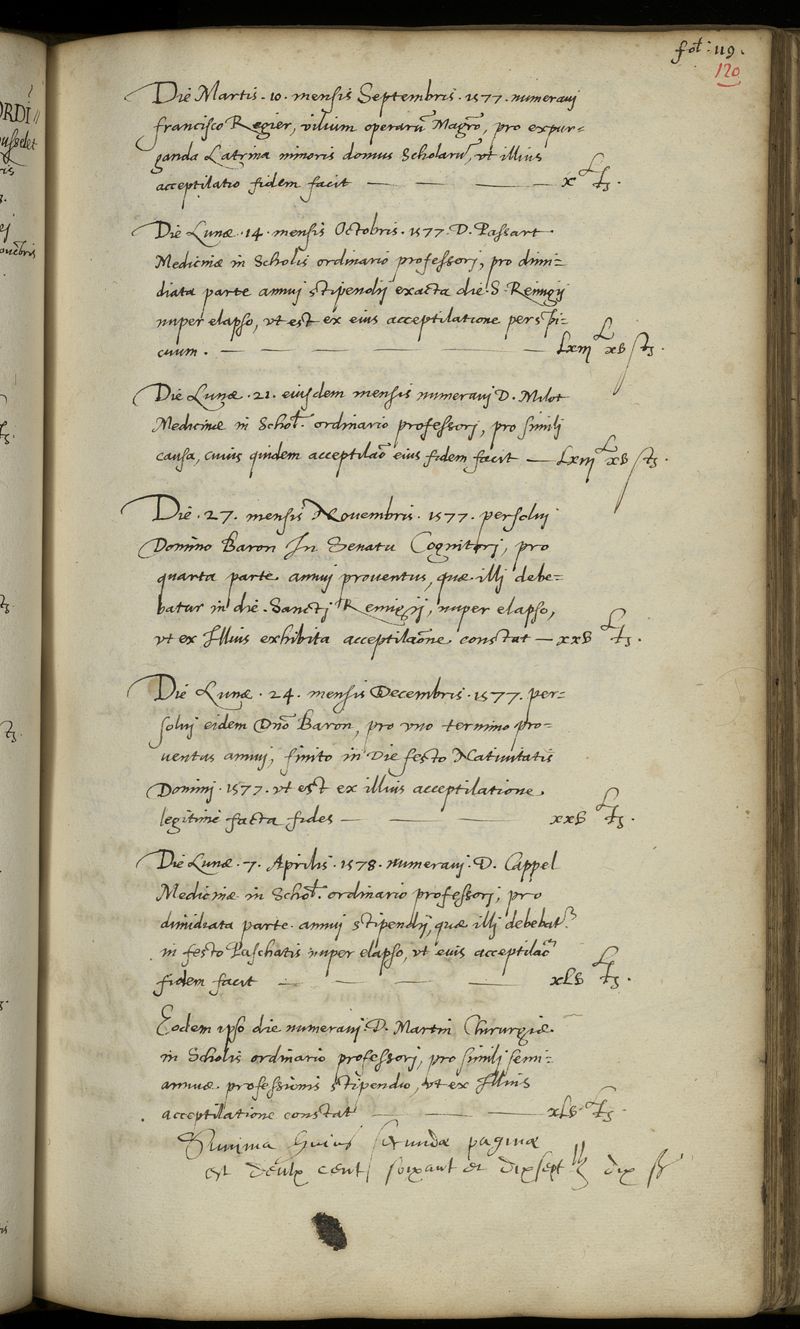 fol: 119.
120
Die Martis. 10. mensis Septembris. 1577. numeravi
francisco Regier, vilium operarũ Magrõ, pro expur=
ganda Latrina minoris domus Scholarũ, vt illius
acceptilatio fidem facit — — — — x ₶.
Die Lunæ. 14. mensis Octobris. 1577. D. Passart.
Medicinæ in Scholis ordinario professorj, pro dimi=
diata parte annuj stipendij exacta die. S. Remigij
nuper elapso, vt est ex eius acceptilatione perspi=
cuum. — — — — — Lxij ₶ xß st.
Die Lunæ. 21. eiusdem mensis numeravj D. Milot
Medicinæ in Schol. ordinario professorj, pro similj
causa, cuius quidem acceptilaõ eius fidem facit — Lxij ₶ xß st.
Die. 27. mensis Nouembris. 1577. persoluj
Domino Baron In Senatu Cognitorj, pro
quarta parte annuj prouentus, quæ illj debe=
batur in die. Sanctj Remigij, nuper elapso,
vt ex Illius exhibita acceptilaõne constat — xxß ₶.
Die Lunæ. 24. mensis Decembris. 1577. per=
soluj eidem Dnõ Baron, pro vno termino pro=
uentus annuj, finito in Die festo Natiuitatis
Dominj. 1577. vt est ex illius acceptilatione.
legitime facta fides — — — xxß ₶.
Die Lunæ. 7. Aprilis. 1578. numeravj. D. Cappel
Medicinæ in Schol. ordinario professorj, pro
dimidiata parte. annuj stipendij, quæ illj debebat.
in festo Paschatis nuper elapso, vt euis acceptilaõ
fidem facit — — — — xLß ₶.
Eodem ipso die numeravj. D. Martin Chirurgiæ.
in Scholis ordinario professorj, pro similj semi=
annuæ. professionis stipendio, vt ex Illius
acceptilatione constat — — — xLß ₶.
Summa huius secundæ paginæ
est deulx cent soixant et dixsept ₶ dix s